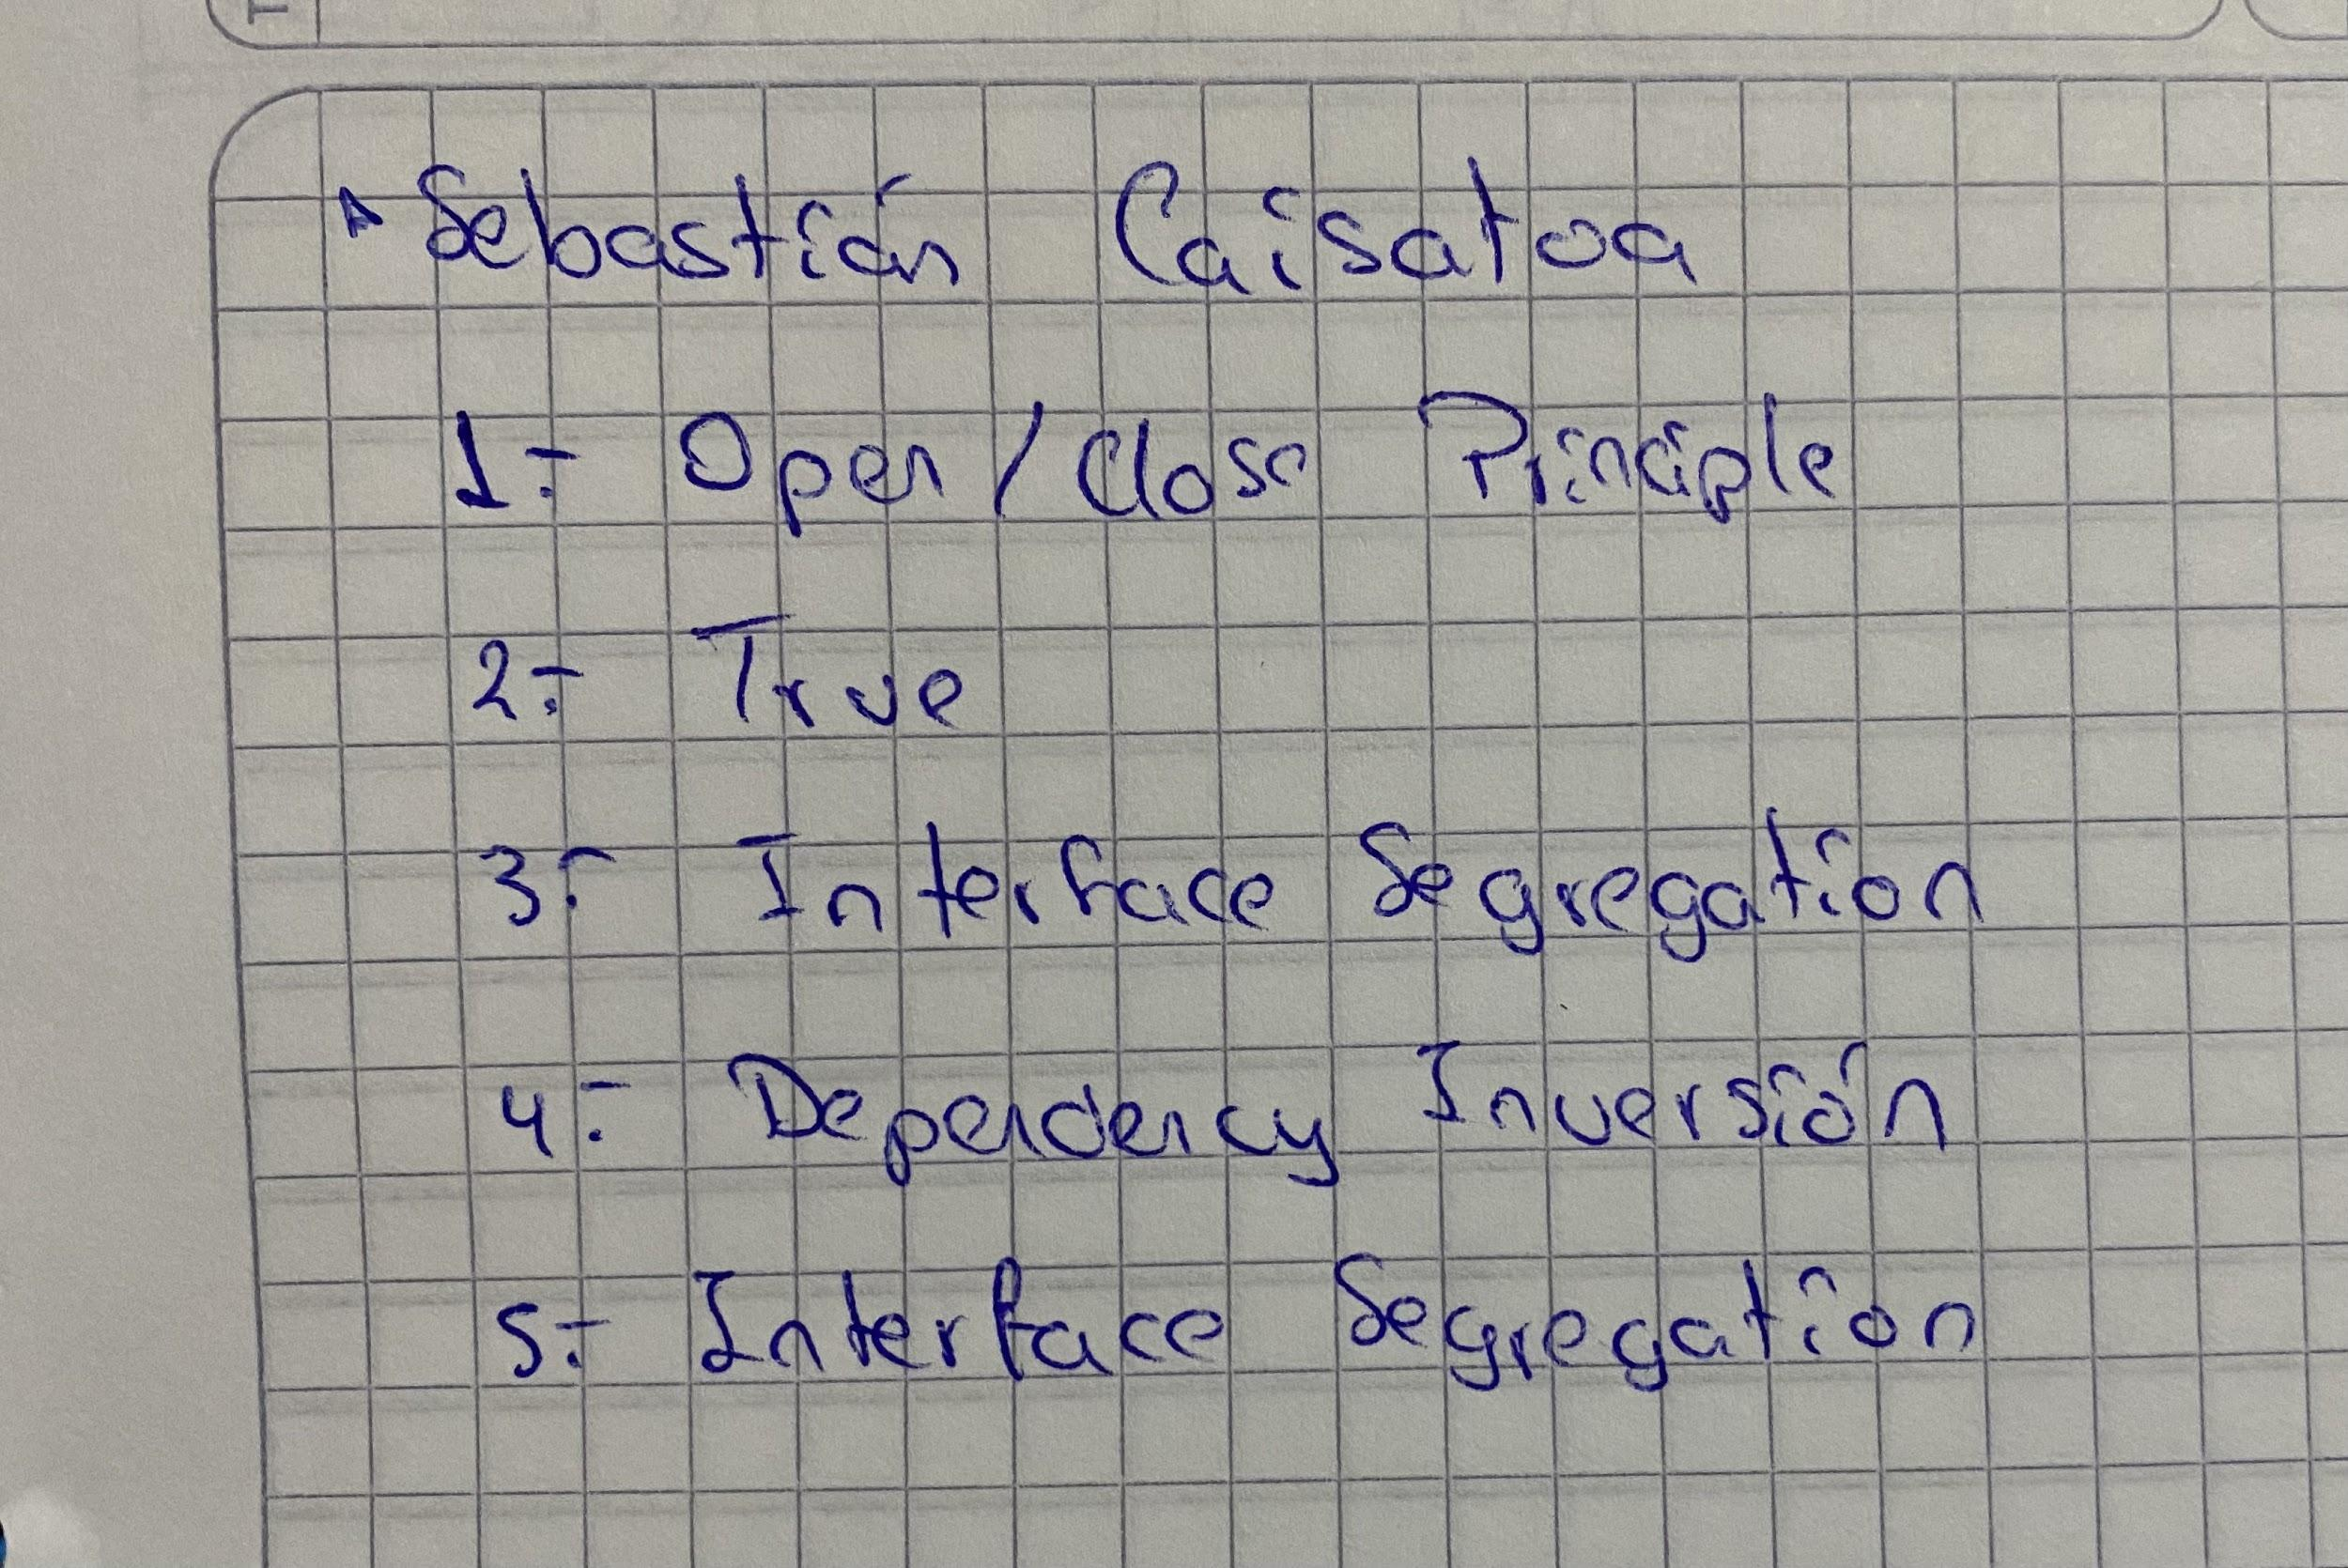 Sebastián Caisatoa
1.- Open / Close Principle
2.- True
3.- Interface Segregation
4.- Dependency Inversión
5.- Interface Segregation